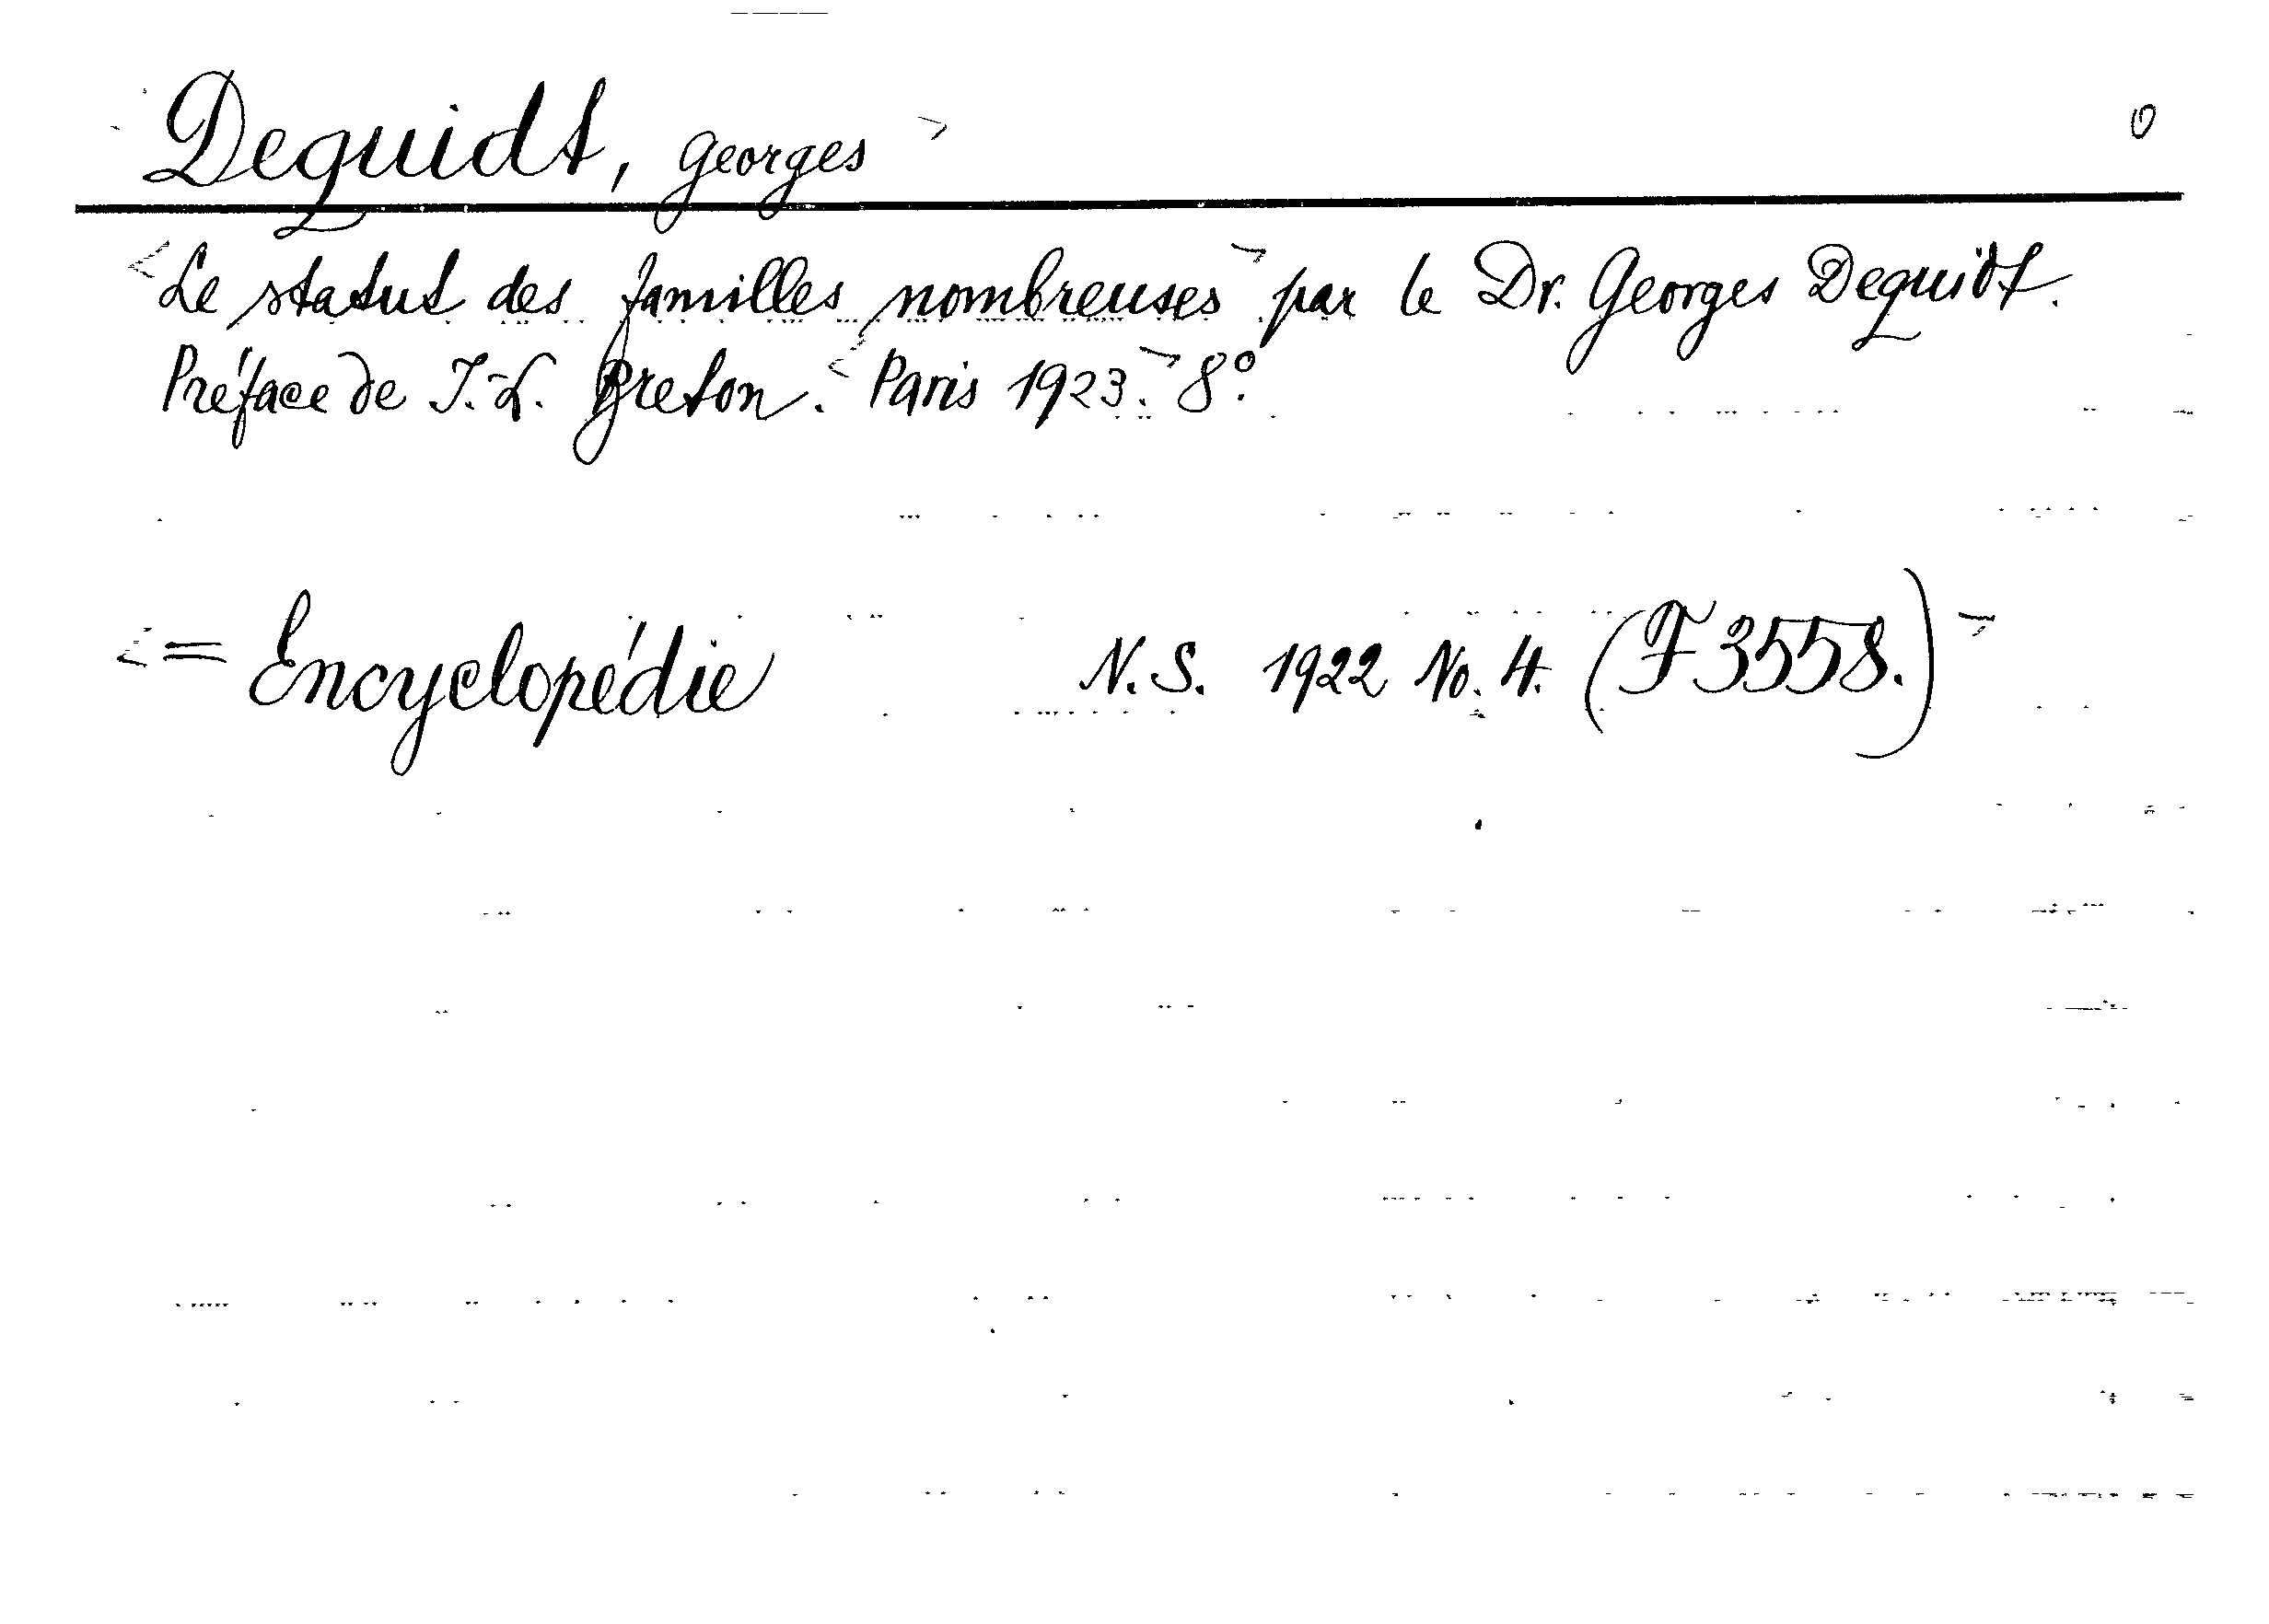 Dequidt, Georges 0
Le statut des familles nombreuses par le Dr. Georges Dequidt.
Préface de J.-L. Breton. Paris 1923. 8°.
= Encyclopédie N.S. 1922 No. 4. (F 3558.)